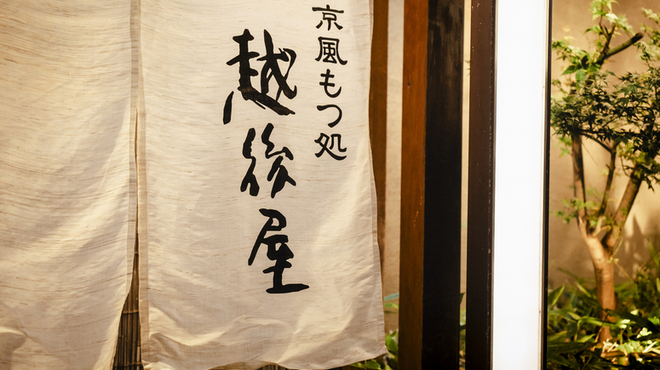 京風もつ処
越後屋